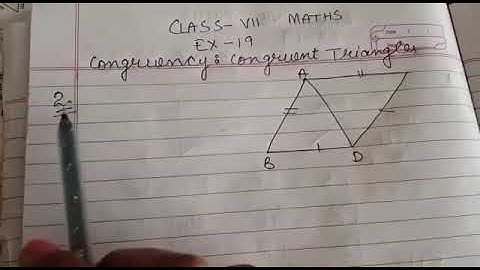 CLASS- VII MATHS
EX-19
Congruency: Congruent Triangles
2.
A
B
D